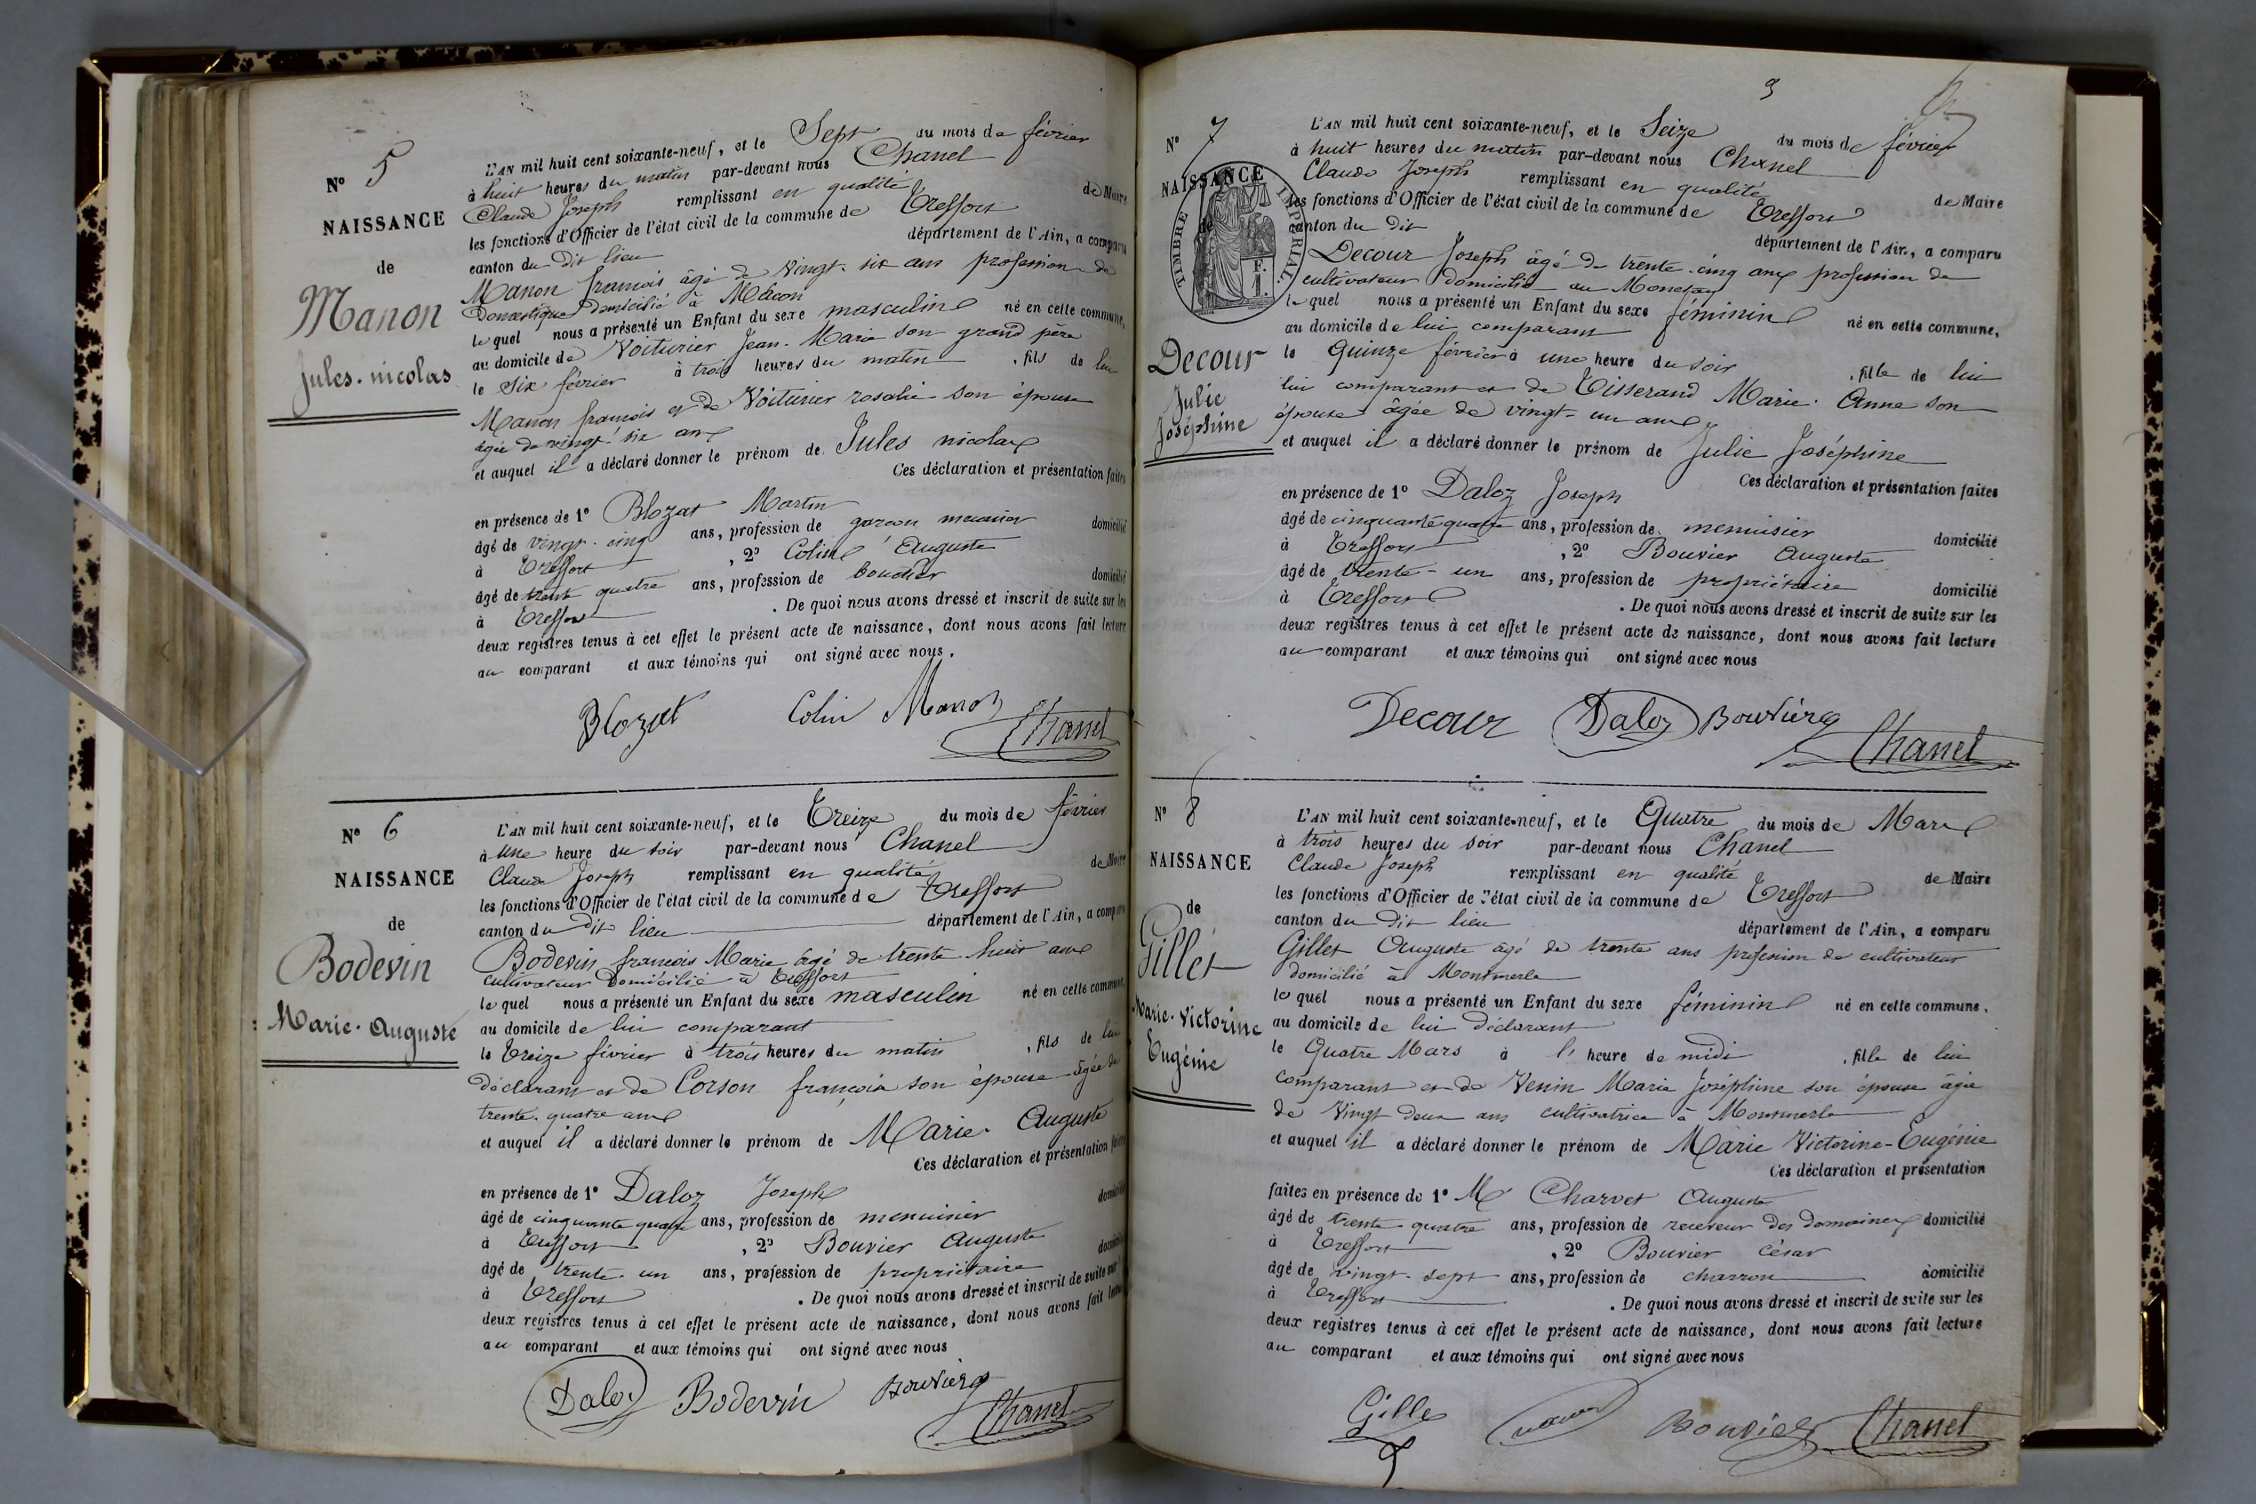 N° 5
NAISSANCE
de
Manon
Jules. nicolas
L'AN mil huit cent soixante-neuf, et le Sept du mois de février
à huit heures du matin par-devant nous Chanel
Claude Joseph remplissant en qualité de Maire
les fonctions d'Officier de l'état civil de la commune de Treffort
canton du dit lieu département de l'Ain, a comparu
Manon francois âgé de vingt. six ans profession de
Domestique domicilié à Mâcon
le quel nous a présenté un Enfant du sexe masculin né en cette commune,
au domicile de Voiturier Jean. Marie son grand père
le six février à trois heures du matin , fils de lui
Manon francois et de Voiturier rosalie son épouse
âgée de vingt. six ans
et auquel il a déclaré donner le prénom de Jules nicolas
Ces déclaration et présentation faites
en présence de 1° Blozat Martin
âgé de vingt. cinq ans, profession de garcon domicilié
à Treffort , 2° Colin Auguste
âgé de trente quatre ans, profession de boucher domicilié
à Treffort . De quoi nous avons dressé et inscrit de suite sur les
deux registres tenus à cet effet le présent acte de naissance, dont nous avons fait lecture
au comparant et aux témoins qui ont signé avec nous.
Blozat Colin Manon
Chanel
N° 6
NAISSANCE
de
Bodevin
Marie. Auguste
L'AN mil huit cent soixante-neuf, et le Treize du mois de février
à une heure du soir par-devant nous Chanel
Claude Joseph remplissant en qualité de Maire
les fonctions d'Officier de l'état civil de la commune de Treffort
canton du dit lieu département de l'Ain, a comparu
Bodevin francois Marie âgé de trente huit ans
cultivateur Domicilié à Treffort
le quel nous a présenté un Enfant du sexe masculin né en cette commune,
au domicile de lui comparant
le Treize février à trois heures du matin , fils de lui
déclarant et de Corson françoise son épouse âgée de
trente. quatre ans
et auquel il a déclaré donner le prénom de Marie. Auguste
Ces déclaration et présentation faites
en présence de 1° Daloz Joseph
âgé de cinquante quatre ans, profession de menuisier domicilié
à Treffort , 2° Bouvier Auguste
âgé de trente. un ans, profession de propriétaire domicilié
à Treffort . De quoi nous avons dressé et inscrit de suite sur
deux registres tenus à cet effet le présent acte de naissance, dont nous avons fait lecture
au comparant et aux témoins qui ont signé avec nous
Daloz Bodevin Bouvier
Chanel
3
N° 7
NAISSANCE
de
TIMBRE IMPERIAL.
Decour
Julie
Joséphine
L'AN mil huit cent soixante-neuf, et le Seize du mois de février
à huit heures du matin par-devant nous Chanel
Claude Joseph remplissant en qualité de Maire
les fonctions d'Officier de l'état civil de la commune de Treffort
canton du dit département de l'Ain, a comparu
Decour Joseph âgé de trente. cinq ans profession de
cultivateur domicilié au
le quel nous a présenté un Enfant du sexe féminin né en cette commune,
au domicile de lui comparant
le quinze février à une heure du soir , fille de lui
lui comparant et de Tisserand Marie. Anne son
épouse âgée de vingt-un ans
et auquel il a déclaré donner le prénom de Julie Joséphine
Ces déclaration et présentation faites
en présence de 1° Daloz Joseph
âgé de cinquante quatre ans, profession de menuisier domicilié
à Treffort , 2° Bouvier Auguste
âgé de trente-un ans, profession de propriétaire domicilié
à Treffort . De quoi nous avons dressé et inscrit de suite sur les
deux registres tenus à cet effet le présent acte de naissance, dont nous avons fait lecture
au comparant et aux témoins qui ont signé avec nous
Decour Daloz Bouvier
Chanel
N° 8
NAISSANCE
de
Gillet
Marie. Victorine
Eugénie
L'AN mil huit cent soixante-neuf, et le Quatre du mois de Mars
à trois heures du soir par-devant nous Chanel
Claude Joseph remplissant en qualité de Maire
les fonctions d'Officier de l'état civil de la commune de Treffort
canton du dit lieu département de l'Ain, a comparu
Gillet Auguste âgé de trente ans profession de cultivateur
domicilié à Montmerle
le quel nous a présenté un Enfant du sexe féminin né en cette commune,
au domicile de lui déclarant
le Quatre Mars à l' heure de midi , fille de lui
comparant et de Venin Marie Joséphine son épouse âgée
de Vingt Deux ans cultivatrice à Montmerle
et auquel il a déclaré donner le prénom de Marie Victorine-Eugénie
Ces déclaration et présentation
faites en présence de 1° Mr Charvet Auguste
âgé de trente quatre ans, profession de receveur des domaines domicilié
à Treffort , 2° Bouvier César
âgé de vingt. sept ans, profession de charron domicilié
à Treffort . De quoi nous avons dressé et inscrit de suite sur les
deux registres tenus à cet effet le présent acte de naissance, dont nous avons fait lecture
au comparant et aux témoins qui ont signé avec nous
Gillet Bouvier Chanel